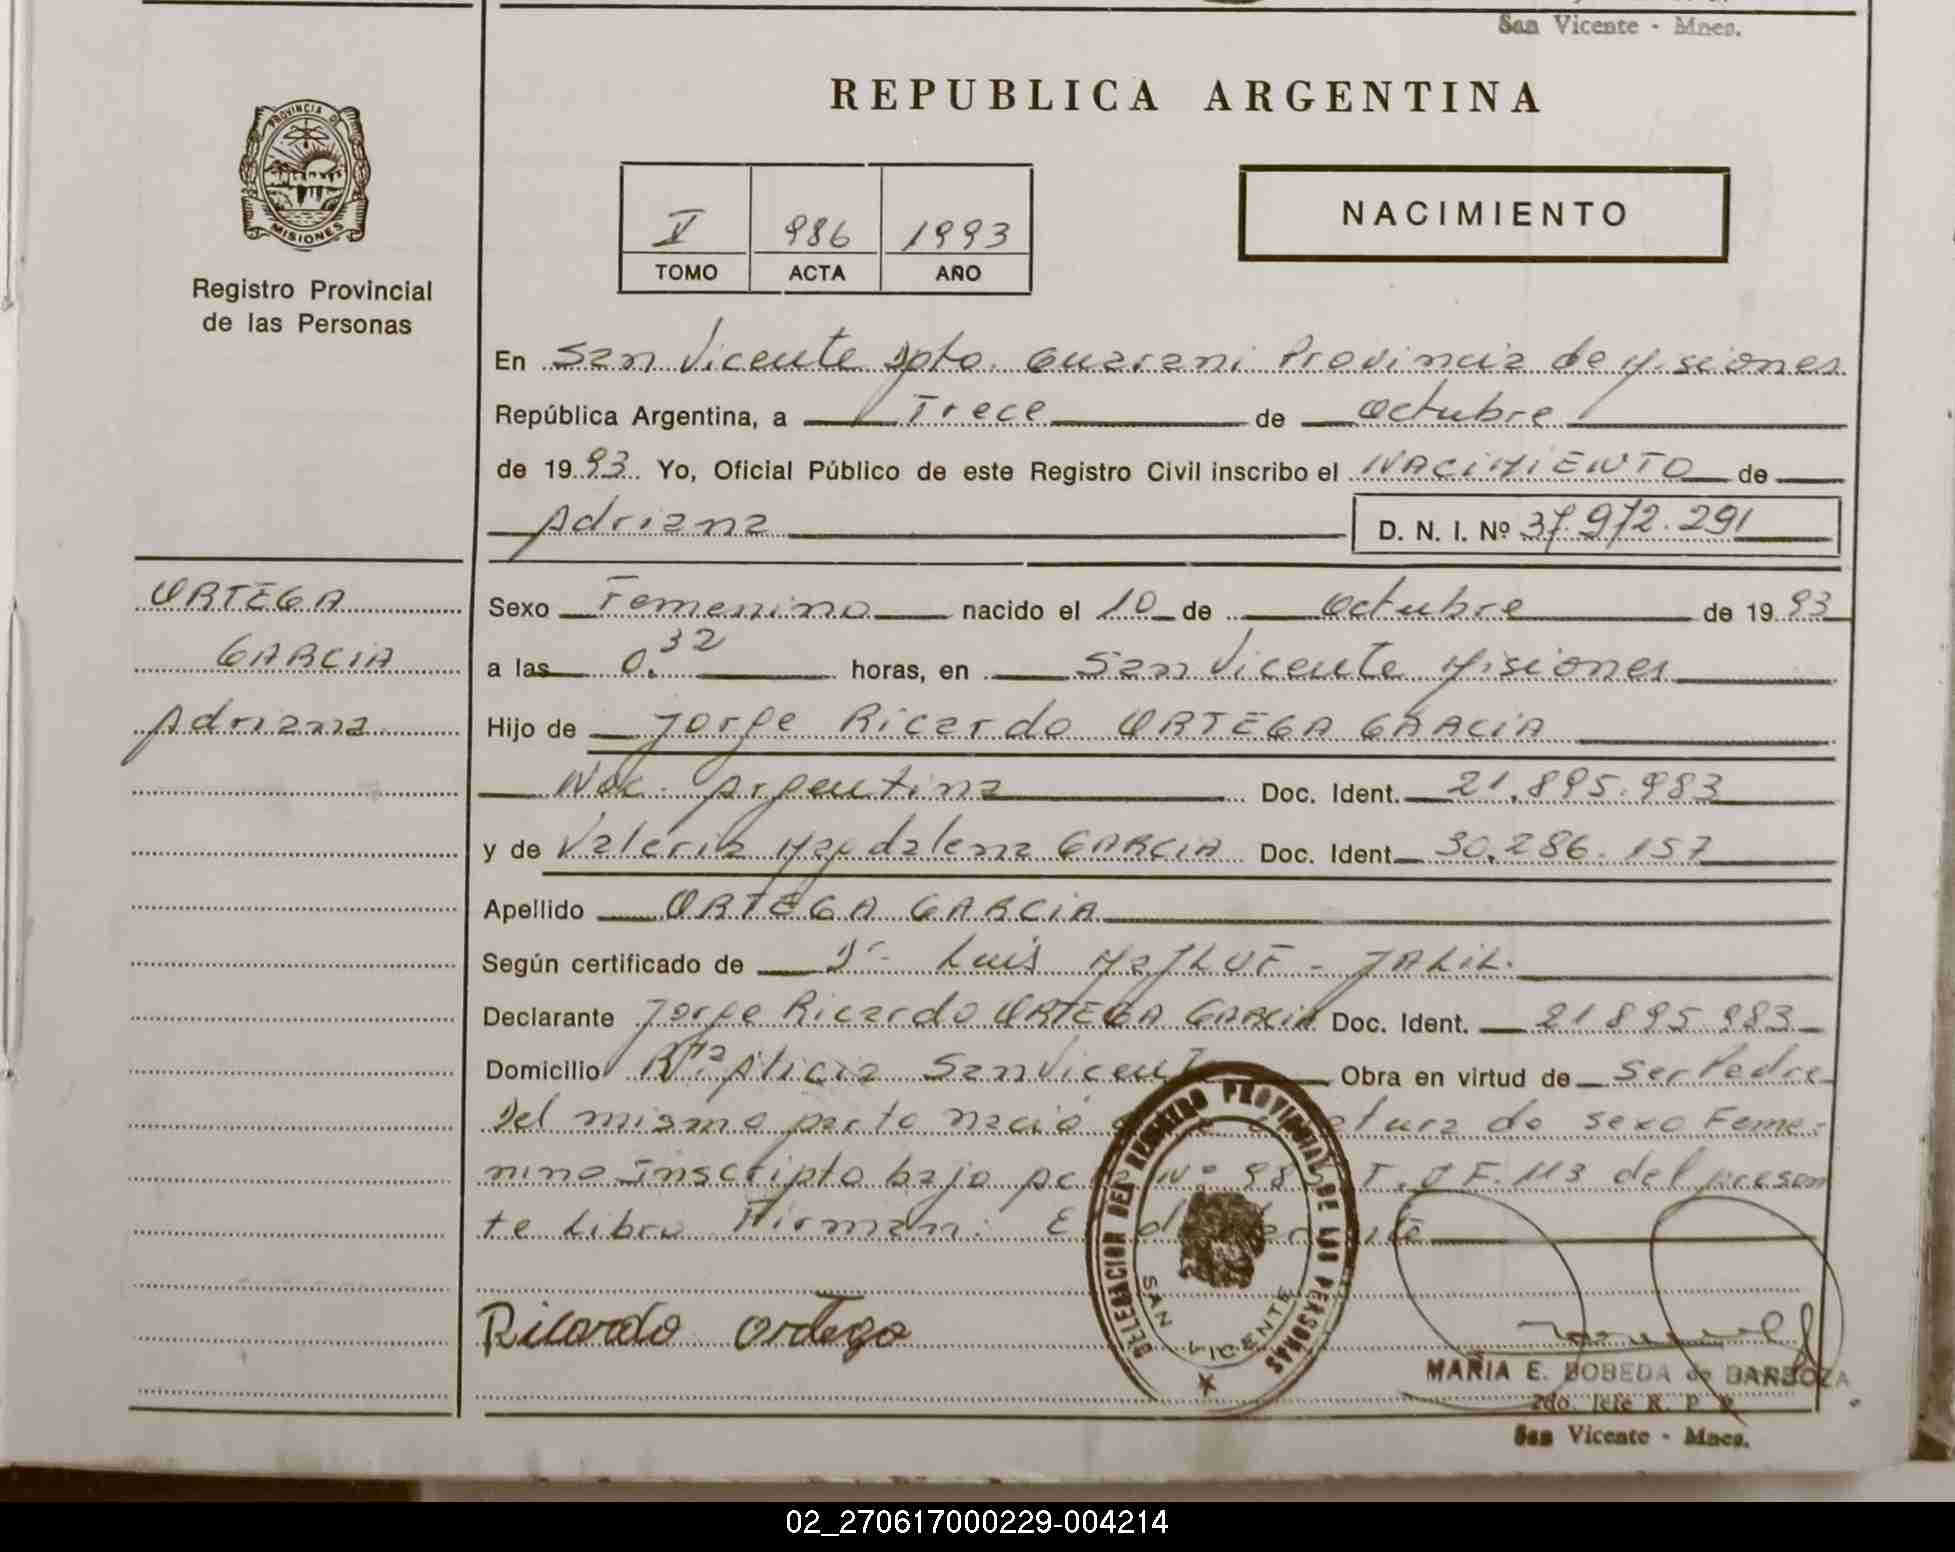 San Vicente - Mnes.
REPUBLICA ARGENTINA
PROVINCIA DE
MISIONES
Registro Provincial
de las Personas
V 986 1993
TOMO ACTA AÑO
NACIMIENTO
En San Vicente Dpto. Guarani Provincia de Misiones
República Argentina, a Trece de Octubre
de 1993. Yo, Oficial Público de este Registro Civil inscribo el NACIMIENTO de
Adriana D. N. I. Nº 37.972.291
ORTEGA
GARCIA
Adriana
Sexo Femenino nacido el 10 de Octubre de 1993
a las 0.32 horas, en San Vicente Misiones
Hijo de Jorge Ricardo ORTEGA GARCIA
Nac. Argentina Doc. Ident. 21.895.983
y de Valeria Magdalena GARCIA Doc. Ident. 30.286.157
Apellido ORTEGA GARCIA
Según certificado de Dr. Luis MaJLUF - JALIL.
Declarante Jorge Ricardo ORTEGA GARCIA Doc. Ident. 21895983
Domicilio Alicia San Vicente Obra en virtud de Ser Padre
Del mismo parto nació de sexo Feme-
nino Inscripto bajo Nº 985 T. V F. 113 del presen
te Libro Firman:
Ricardo Ortega
DELEGACION DEL REGISTRO PROVINCIAL DE LAS PERSONAS
SAN VICENTE
MARIA E. BOBEDA de BARBOZA
2do. Jefe R. P. P.
San Vicente - Mnes.
02_270617000229-004214